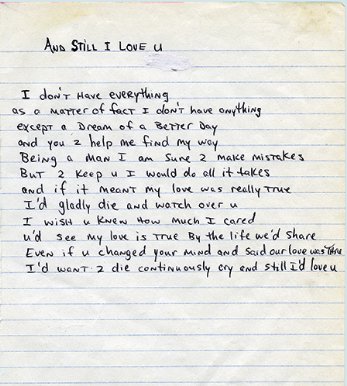 And Still I Love U
I don't have everything
as a matter of fact I don't have anything
except a Dream of a Better Day
and you 2 help me find my way
Being a man I am sure 2 make mistakes
But 2 keep u I would do all it takes
and if it meant my love was really true
I'd gladly die and watch over u
I wish u knew how much I cared
u'd see my love is true By the life we'd share
Even if u changed your mind and said our love was thru
I'd want 2 die continuously cry and still I'd love u